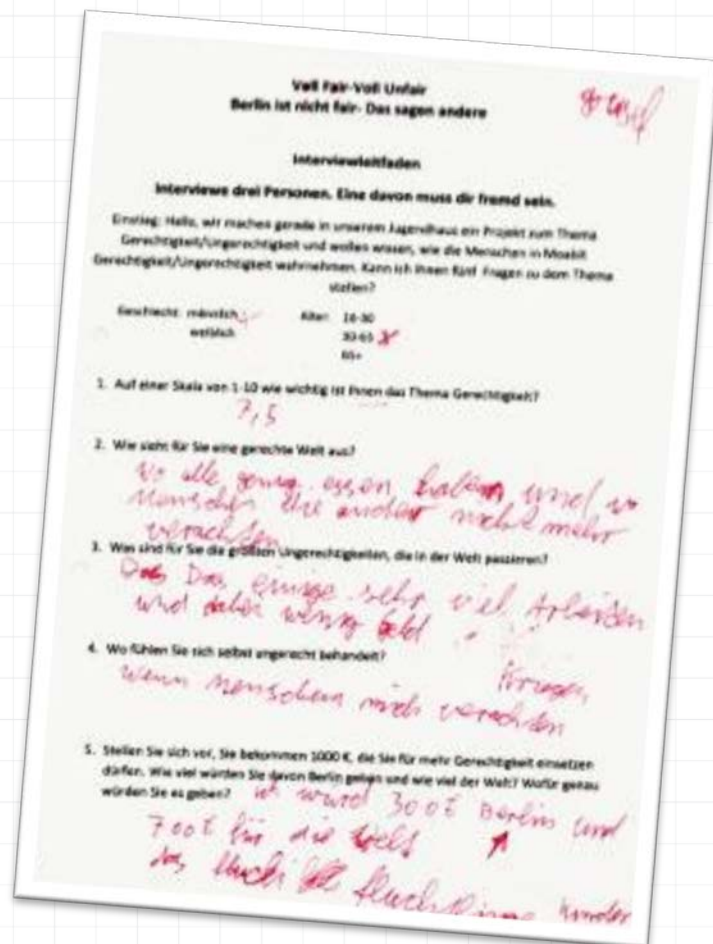 Voll Fair-Voll Unfair
Berlin ist nicht fair- Das sagen andere
Interviewleitfaden
Interviewe drei Personen. Eine davon muss dir fremd sein.
Einstieg: Hallo, wir machen gerade in unserem Jugendhaus ein Projekt zum Thema
Gerechtigkeit/Ungerechtigkeit und wollen wissen, wie die Menschen in Moabit
Gerechtigkeit/Ungerechtigkeit wahrnehmen. Kann ich Ihnen fünf Fragen zu dem Thema
stellen?
Geschlecht: männlich Alter: 16-30
weiblich 30-65 x
65+
1. Auf einer Skala von 1-10 wie wichtig ist Ihnen das Thema Gerechtigkeit?
7,5
2. Wie sieht für Sie eine gerechte Welt aus?
wo alle genug essen haben und wo
menschen nicht mehr
verachten
3. Was sind für Sie die größten Ungerechtigkeiten, die in der Welt passieren?
Das einige sehr viel Arbeiten
und dabei wenig Geld
Kriege,
4. Wo fühlen Sie sich selbst ungerecht behandelt?
wenn menschen mich verachten
5. Stellen Sie sich vor, Sie bekommen 1000 €, die Sie für mehr Gerechtigkeit einsetzen
dürfen. Wie viel würden Sie davon Berlin geben und wie viel der Welt? Wofür genau
würden Sie es geben? ich würd 300€ Berlin und
700€ für die Welt
Kinder